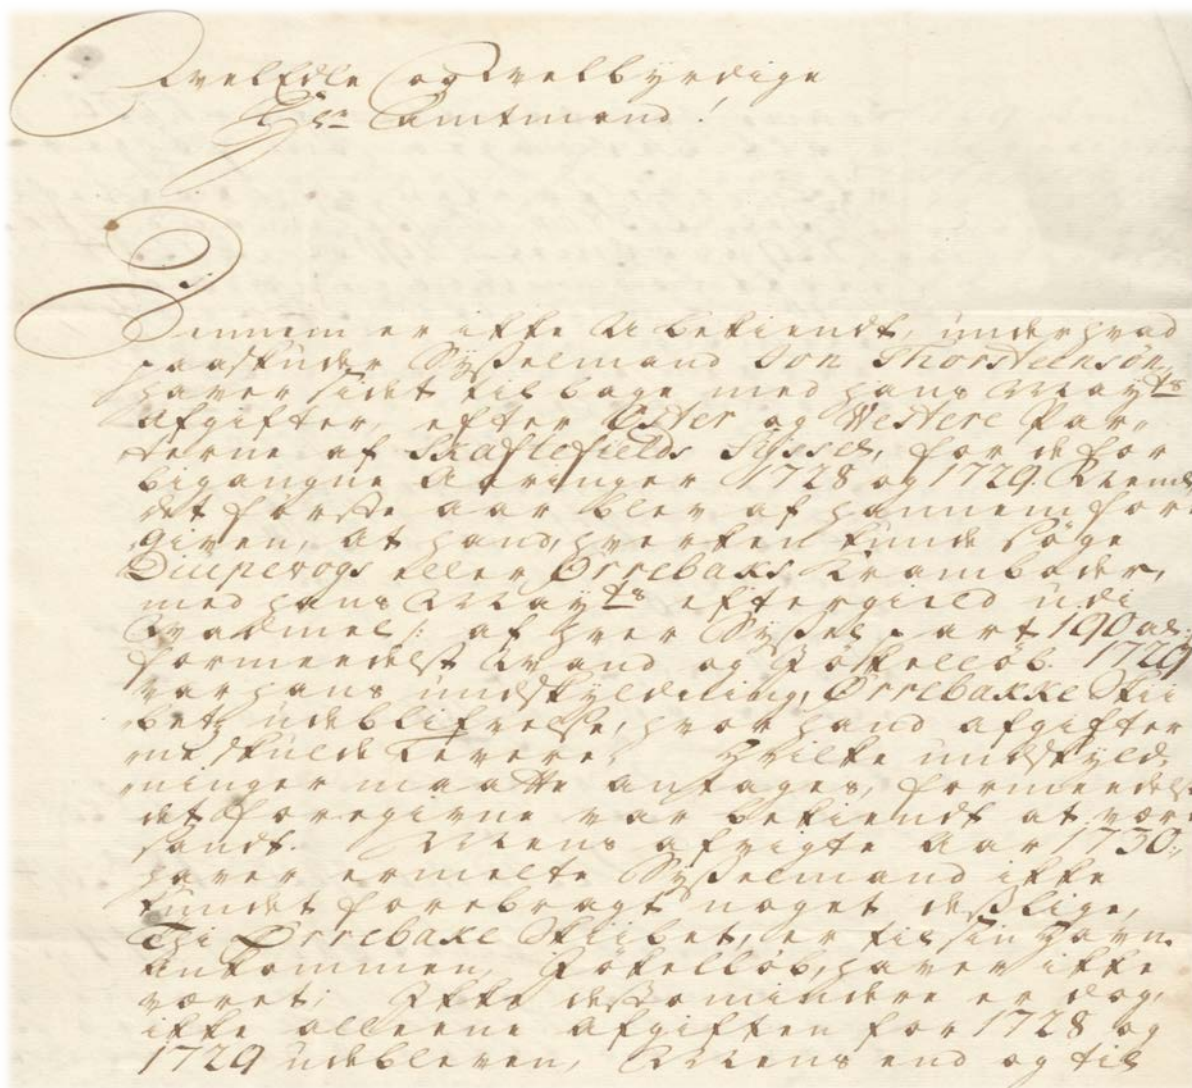 Wel Edle og Velbyrdige
Hr Amtmand!
Dennem er ikke Ubekiendt, under hvad
paaskuder Sysselmand Jon Thorsteensøn
haver sidet tilbage med hans Mayts
afgifter, efter Øster og Westere Par„
„terne af Skaftefields Syssel, for de for
bigangne Aaringer 1728 og 1729. Nemb
det første aar blev af hannem fore
given, at hand, hverken kunde søge
Diupevogs eller Ørrebaks Kramboder,
med hans Mayts eftergield udi
Vadmel /: af hver Syssel part 190 al:
formedelst Vand og Jøkelløb. 1729
var hans undskyldning, Ørrebakke Skii
„betz udeblifvelse, hvor hand afgifter
„ne skulde levere. Hvilke undskyld„
„ninger maatte antages, formedelst
det foregivne var bekiendt at være
sandt. Mens afvigte Aar 1730:,
haver ermelte Sysselmand ikke
kundet forebragt noget desslige,
Thi Ørrebake Skiibet, er til sin Havn
ankommen, Jøkelløb, haver ikke
været; Ikke dessomindere er dog,
ikke alleene afgiften for 1728 og
1729 udebleven, Mens end og til